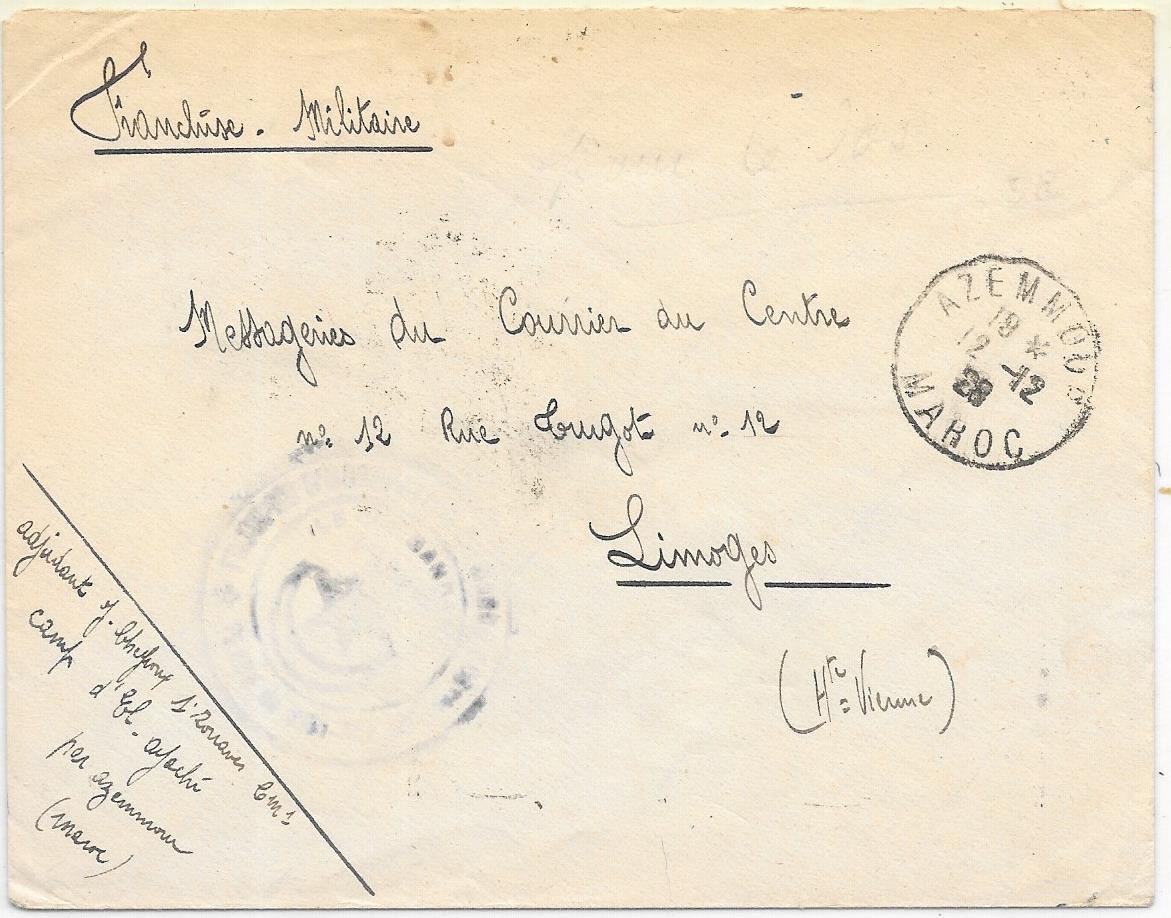 Franchise - Militaire
Messageries du Courrier du Centre
n° 12 Rue Turgot n° 12
Limoges
(Hte = Vienne)
AZEMMOUR
19 *
12 -12
28
MAROC
adjudant J. 1er Zouaves CM1
camp d'El-ayachi
par azemmour
(maroc)